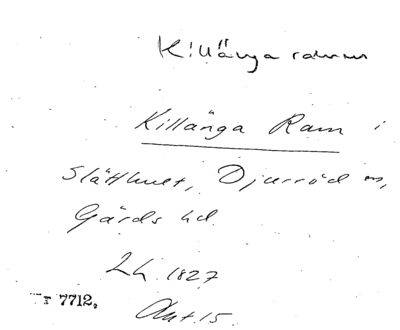 Killänga ramm
Killänga Ram i
Slätthult, Djurröd sn,
Gärds hd.
Lh. 1827
r 7712.
Akt. 15.